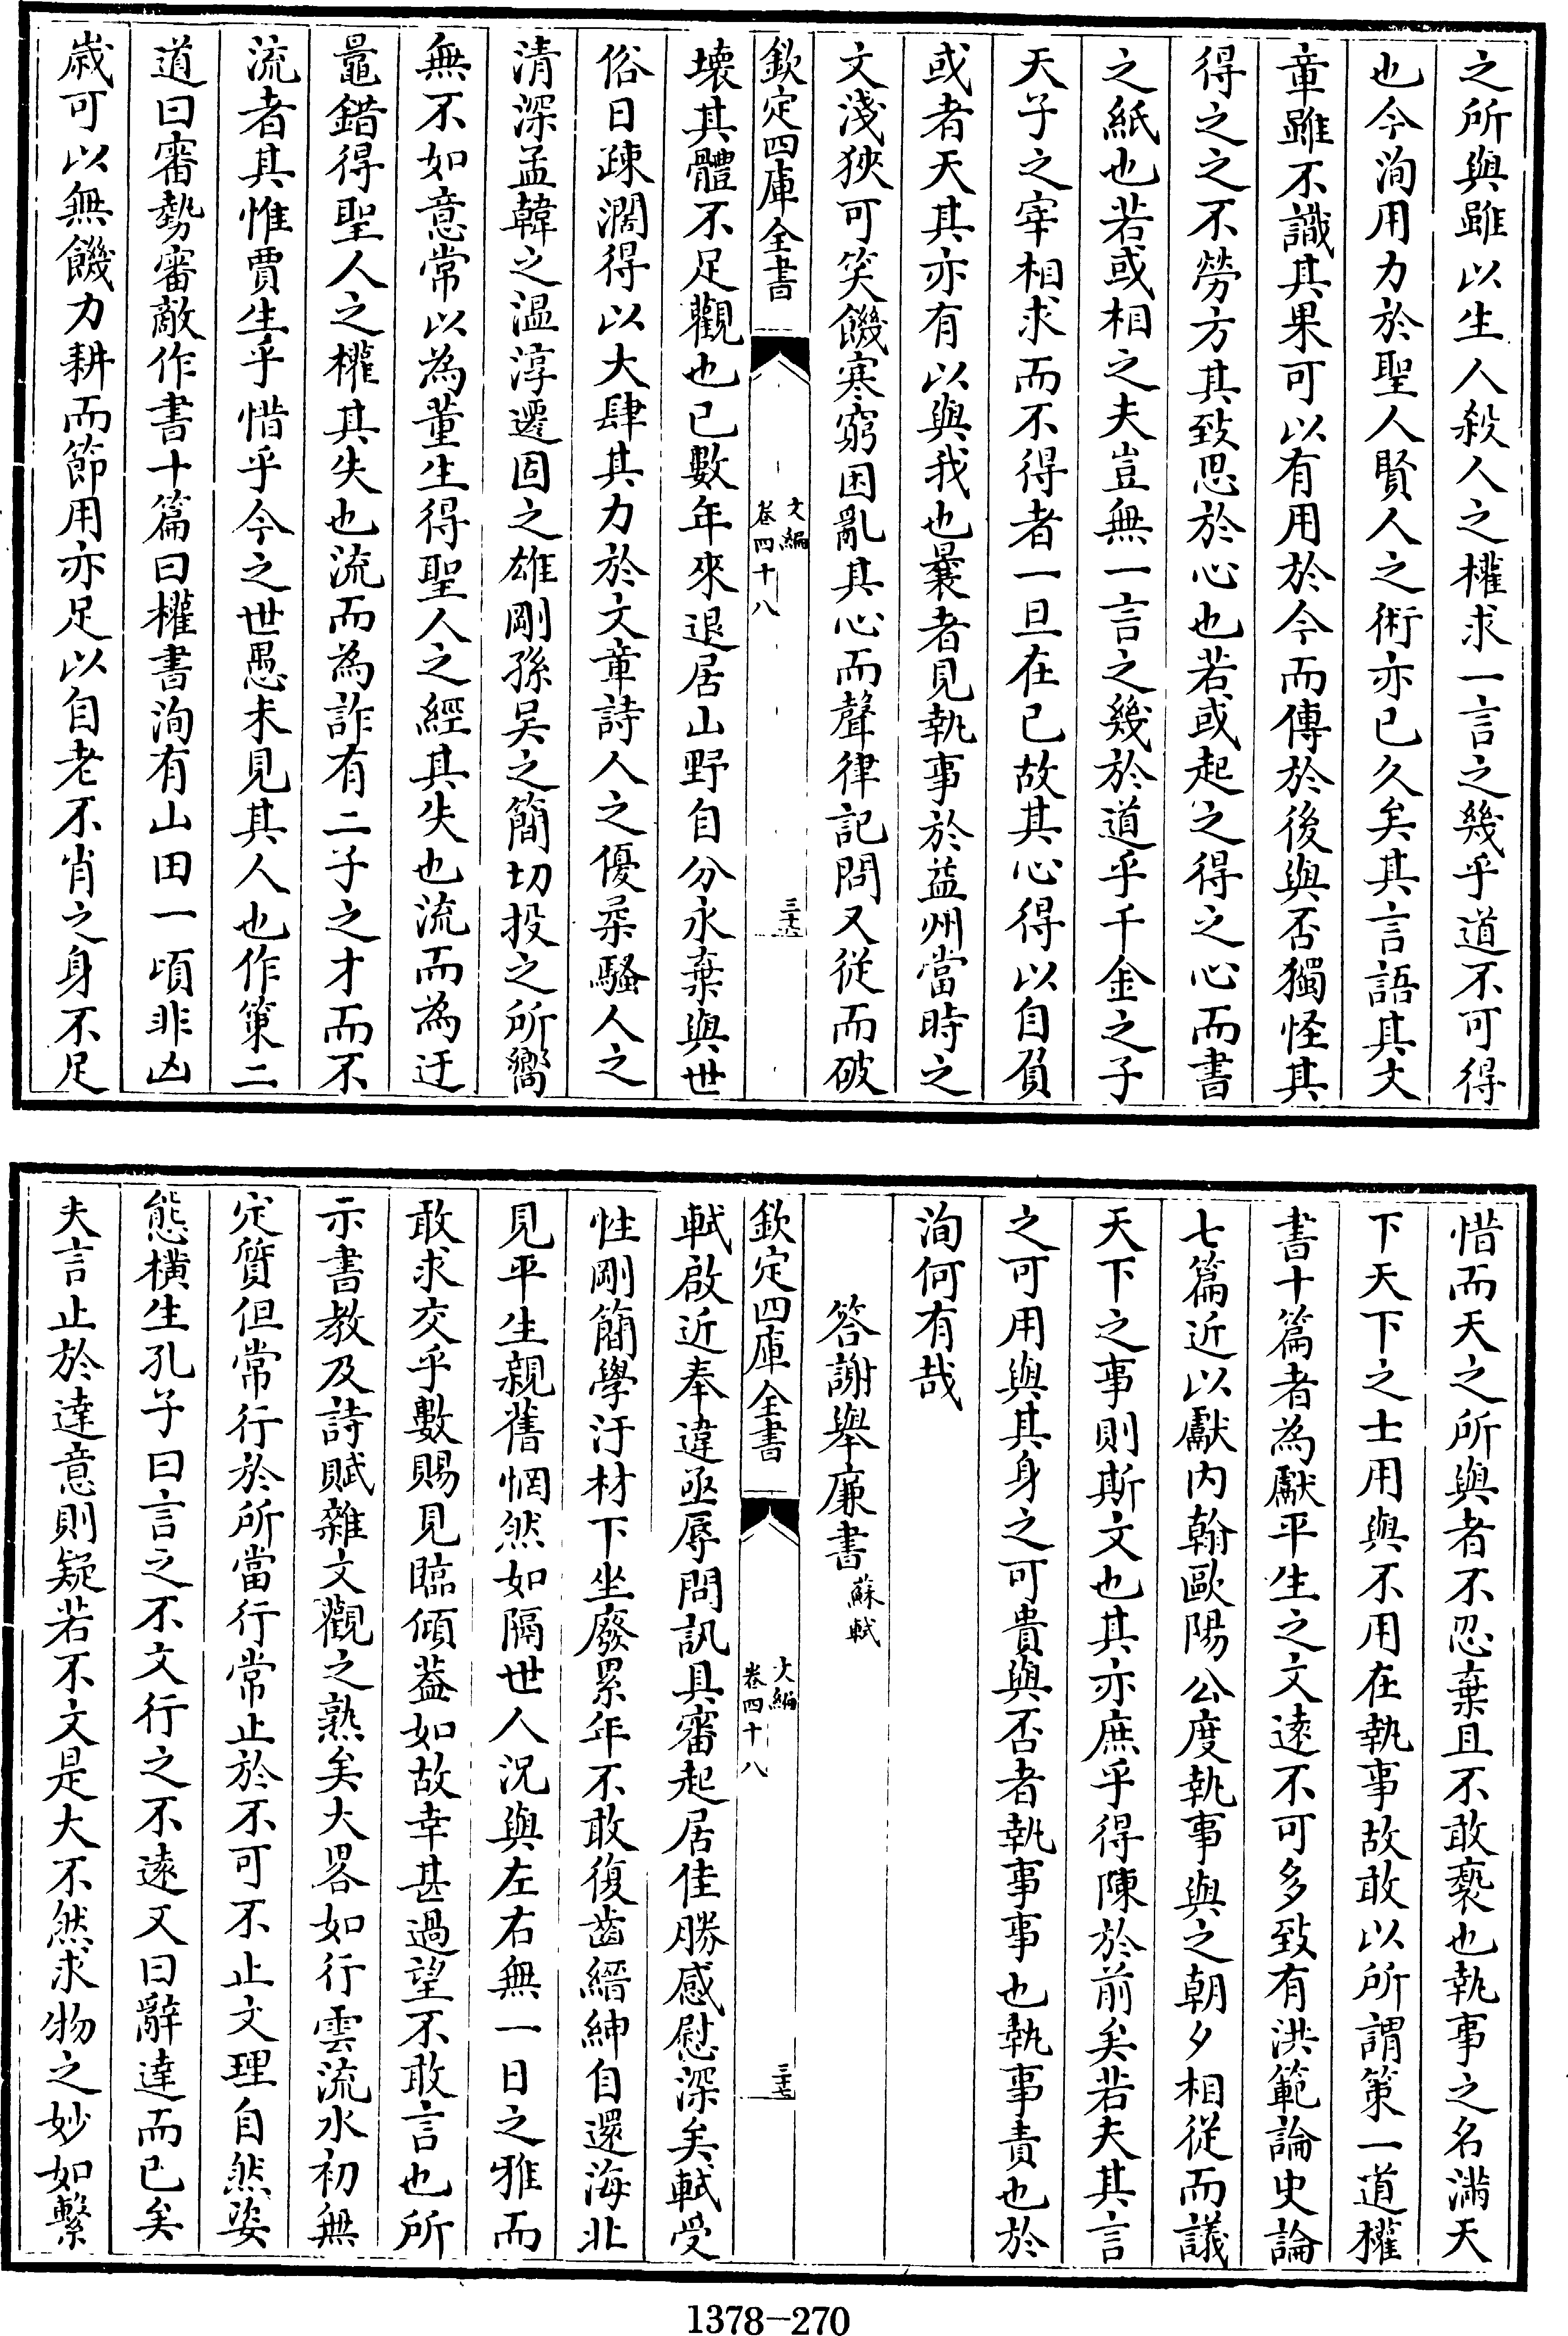 之所與雖以生人殺人之權求一言之幾乎道不可得
也今洵用力於聖人賢人之術亦已久矣其言語其文
章雖不識其果可以有用於今而傳於後與否獨怪其
得之之不勞方其致思於心也若或起之得之心而書
之紙也若或相之夫豈無一言之幾於道乎千金之子
天子之宰相求而不得者一旦在已故其心得以自負
或者天其亦有以與我也曩者見執事於益州當時之
文淺狹可笑饑寒窮困亂其心而聲律記問又從而破
欽定四庫全書
文編
卷四十八
三十六
壞其體不足觀也已數年來退居山野自分永棄與世
俗日疎濶得以大肆其力於文章詩人之優柔騷人之
清深孟韓之溫淳遷固之雄剛孫吳之簡切投之所嚮
無不如意常以為董生得聖人之經其失也流而為迂
鼂錯得聖人之權其失也流而為詐有二子之才而不
流者其惟賈生乎惜乎今之世愚未見其人也作策二
道曰審勢審敵作書十篇曰權書洵有山田一頃非凶
歲可以無饑力耕而節用亦足以自老不肖之身不足
惜而天之所與者不忍棄且不敢褻也執事之名滿天
下天下之士用與不用在執事故敢以所謂策一道權
書十篇者為獻平生之文遠不可多致有洪範論史論
七篇近以獻内翰歐陽公度執事與之朝夕相從而議
天下之事則斯文也其亦庶乎得陳於前矣若夫其言
之可用與其身之可貴與否者執事事也執事責也於
洵何有哉
答謝舉廉書蘇軾
欽定四庫全書
文編
卷四十八
三十七
軾啟近奉違亟辱問訊具審起居佳勝感慰深矣軾受
性剛簡學汙材下坐廢累年不敢復齒縉紳自還海北
見平生親舊惘然如隔世人況與左右無一日之雅而
敢求交乎數賜見臨傾蓋如故幸甚過望不敢言也所
示書教及詩賦雜文觀之熟矣大畧如行雲流水初無
定質但常行於所當行常止於不可不止文理自然姿
態橫生孔子曰言之不文行之不遠又曰辭達而已矣
夫言止於達意則疑若不文是大不然求物之妙如繫
1378-270